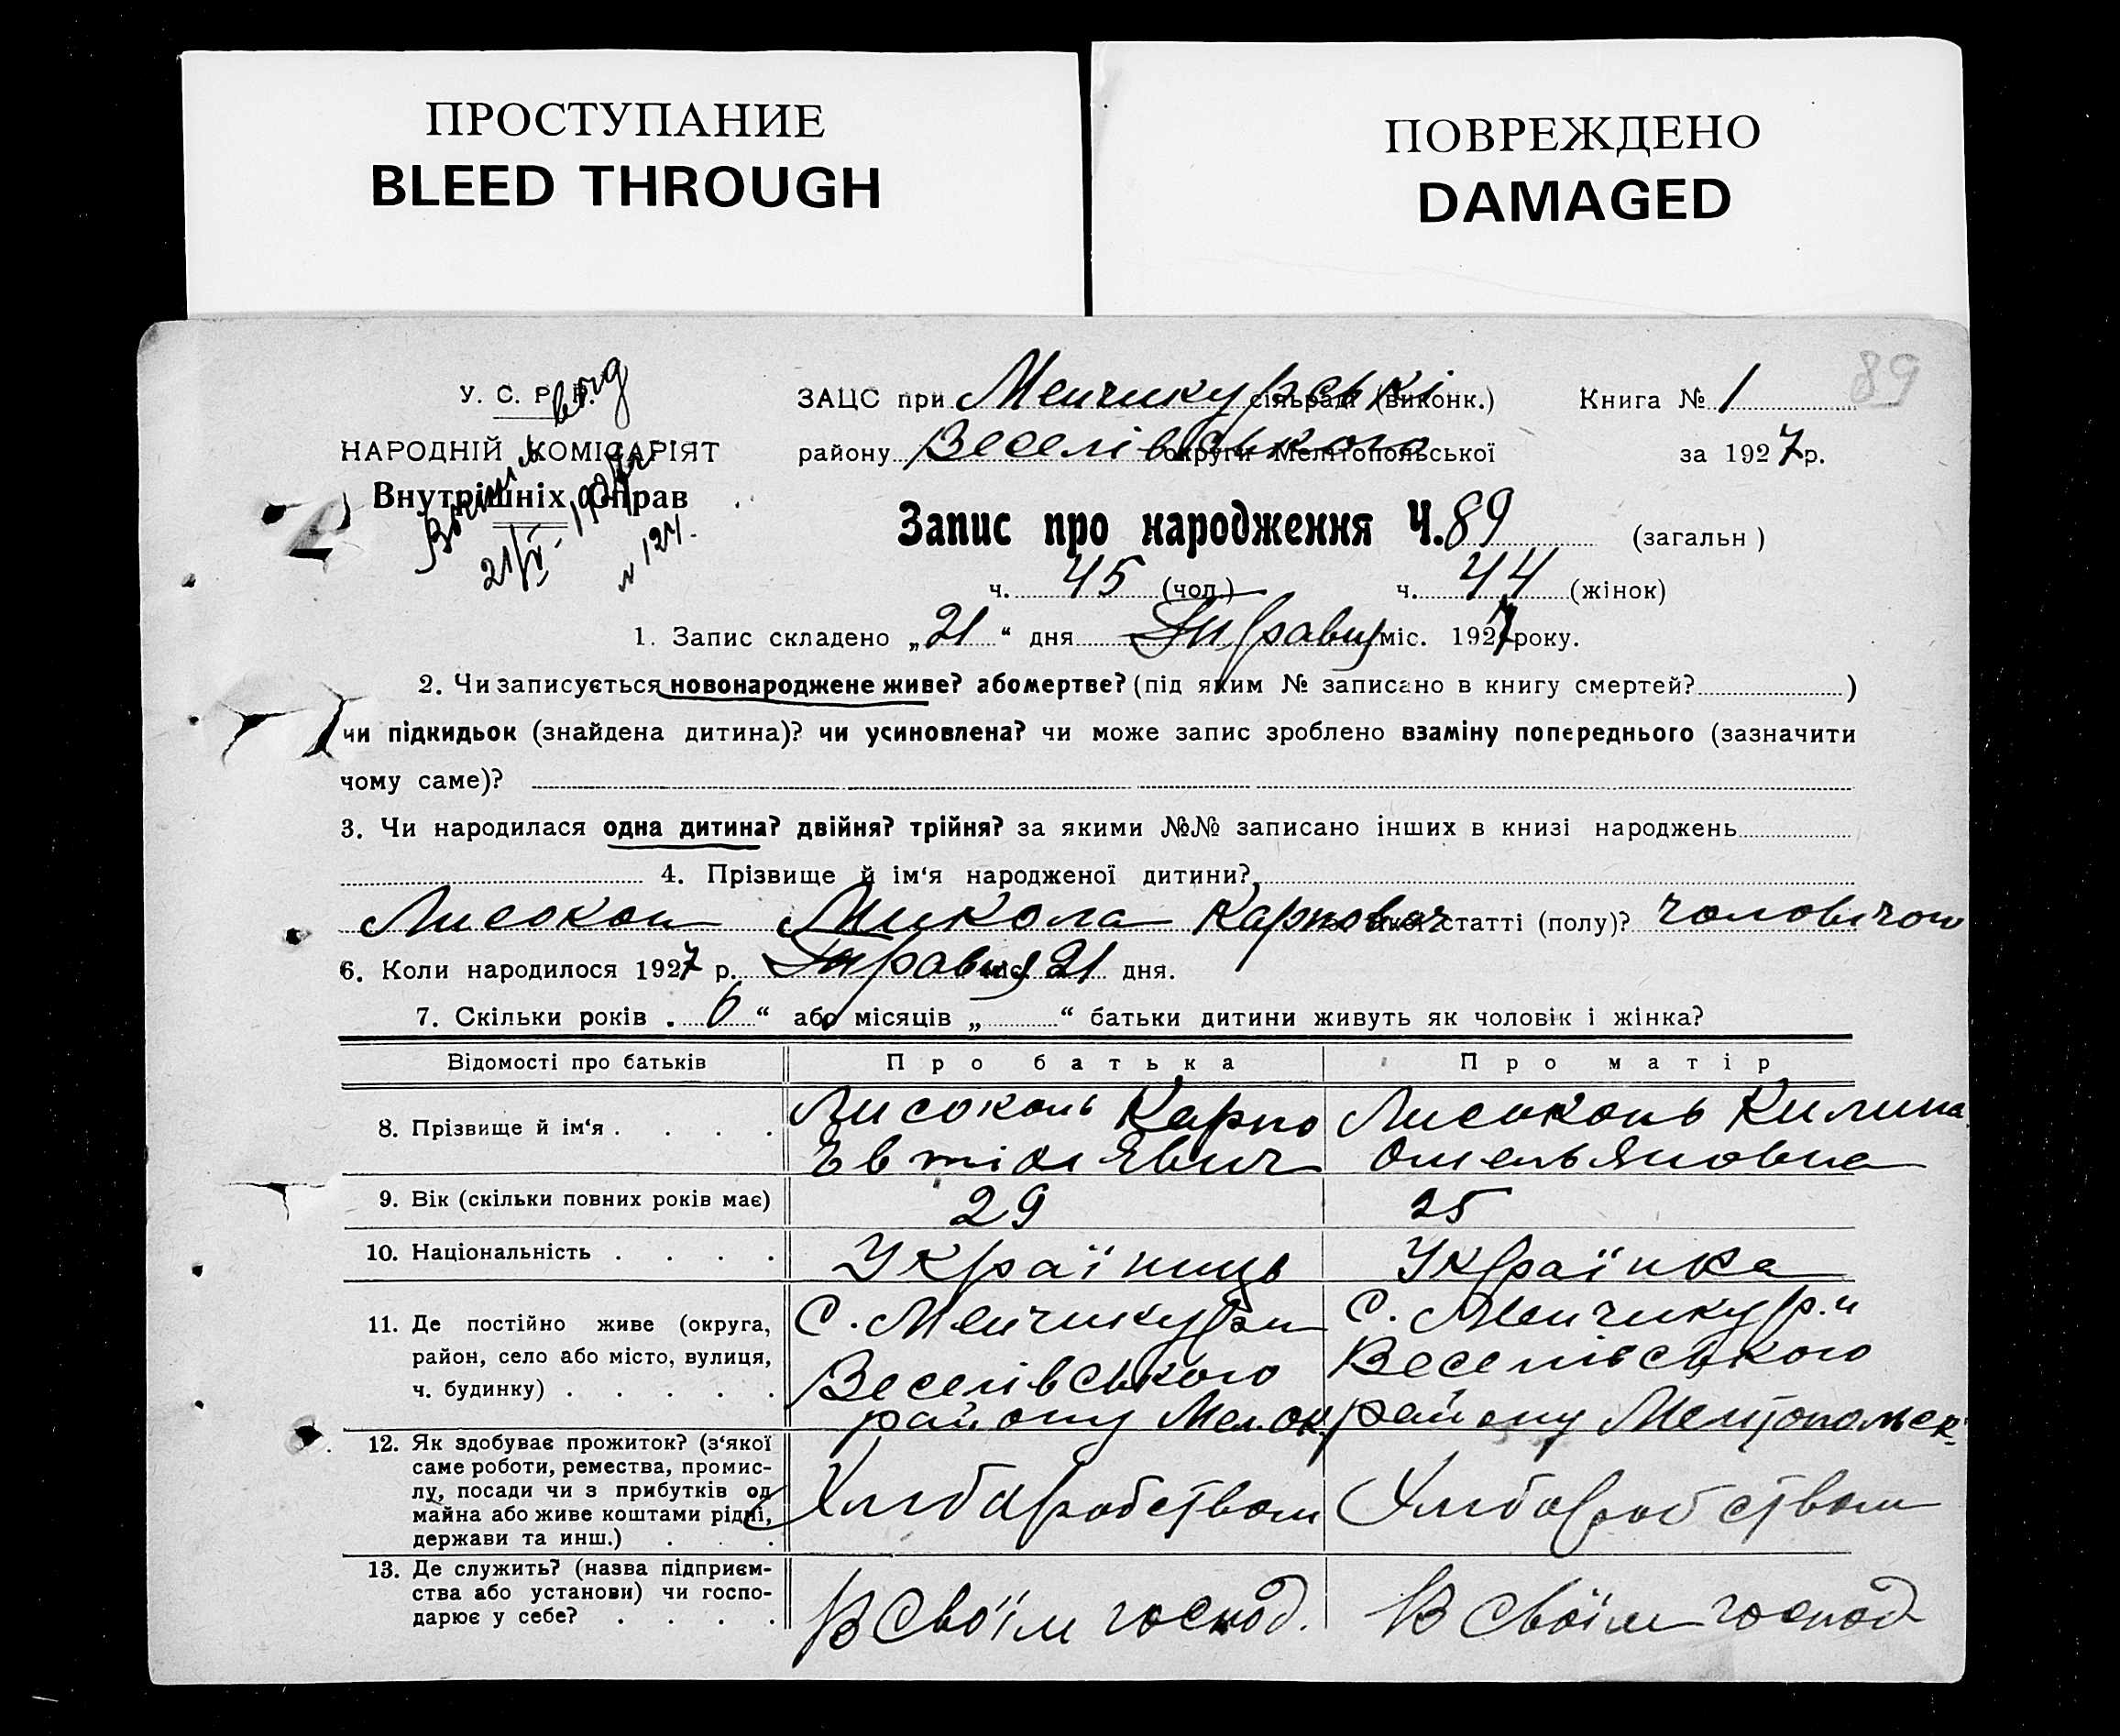 ПРОСТУПАНИЕ
BLEED THROUGH
ПОВРЕЖДЕНО
DAMAGED
89
У. С. Р. Р.
НАРОДНІЙ КОМІСАРІЯТ
Внутрішніх Справ
№ 127.
ЗАЦС при Менчикурські сільраді (виконк.) Книга № 1
району Веселівського округи Мелітопольської за 1927 р.
Запис про народження Ч. 89 (загальн)
ч. 45 (чол.) ч. 44 (жінок)
1. Запис складено „21“ дня Травня міс. 1927 року.
2. Чи записується новонароджене живе? або мертве? (під яким № записано в книгу смертей? )
чи підкидьок (знайдена дитина)? чи усиновлена? чи може запис зроблено взаміну попереднього (зазначити
чому саме)?
3. Чи народилася одна дитина? двійня? трійня? за якими №№ записано інших в книзі народжень
4. Прізвище й ім‘я народженої дитини?
Лисоконь Микола Карпович статті (полу)? чоловічої
6. Коли народилося 1927 р. Травня міс. 21 дня.
7. Скільки років „6“ або місяців „ “ батьки дитини живуть як чоловік і жінка?
Відомості про батьків Про батька Про матір
8. Прізвище й ім‘я . . . . Лисоконь Карпо Лисоконь Килина
Євтіхієвич Омельяновна
9. Вік (скільки повних років має) 29 25
10. Національність . . . . Україниць Українка
11. Де постійно живе (округа, С. Менчикури С. Менчикури
район, село або місто, вулиця, Веселівського Веселівського
ч. будинку) . . . . . району Мел. ок. району Мелітопольськ.
12. Як здобуває прожиток? (з‘якої
саме роботи, ремества, промис-
лу, посади чи з прибутків од Хлибаробством Хлибаробством
майна або живе коштами рідні,
держави та инш.) . . .
13. Де служить? (назва підприєм-
ства або установи) чи госпо- В своїм господ. В своїм господ
дарює у себе? . . . .